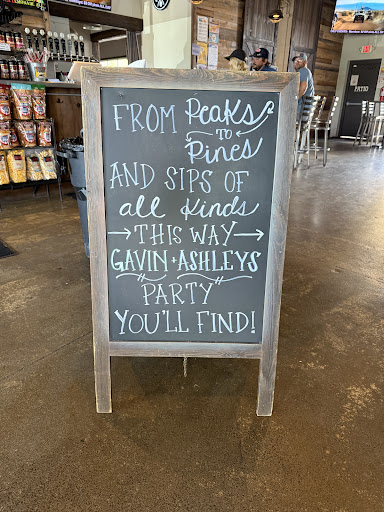 FROM Peaks
TO
Pines
AND SIPS OF
all Kinds
→ THIS WAY →
GAVIN + ASHLEYS
PARTY
YOU'LL FIND!
PATIO